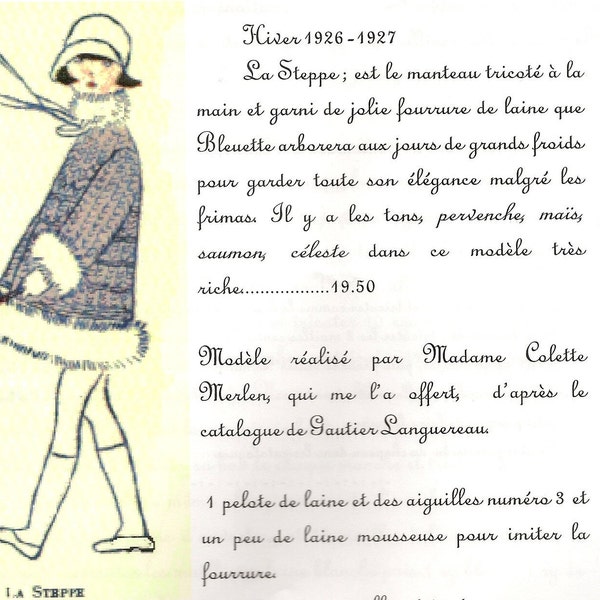 Hiver 1926-1927
La Steppe ; est le manteau tricoté à la
main et garni de jolie fourrure de laine que
Bleuette arborera aux jours de grands froids
pour garder toute son élégance malgré les
frimas. Il y a les tons, pervenche, maïs,
saumon, céleste dans ce modèle très
riche.................19.50
Modèle réalisé par Madame Colette
Merlen, qui me l'a offert, d'après le
catalogue de Gautier Languereau.
1 pelote de laine et des aiguilles numéro 3 et
un peu de laine mousseuse pour imiter la
fourrure.
LA STEPPE